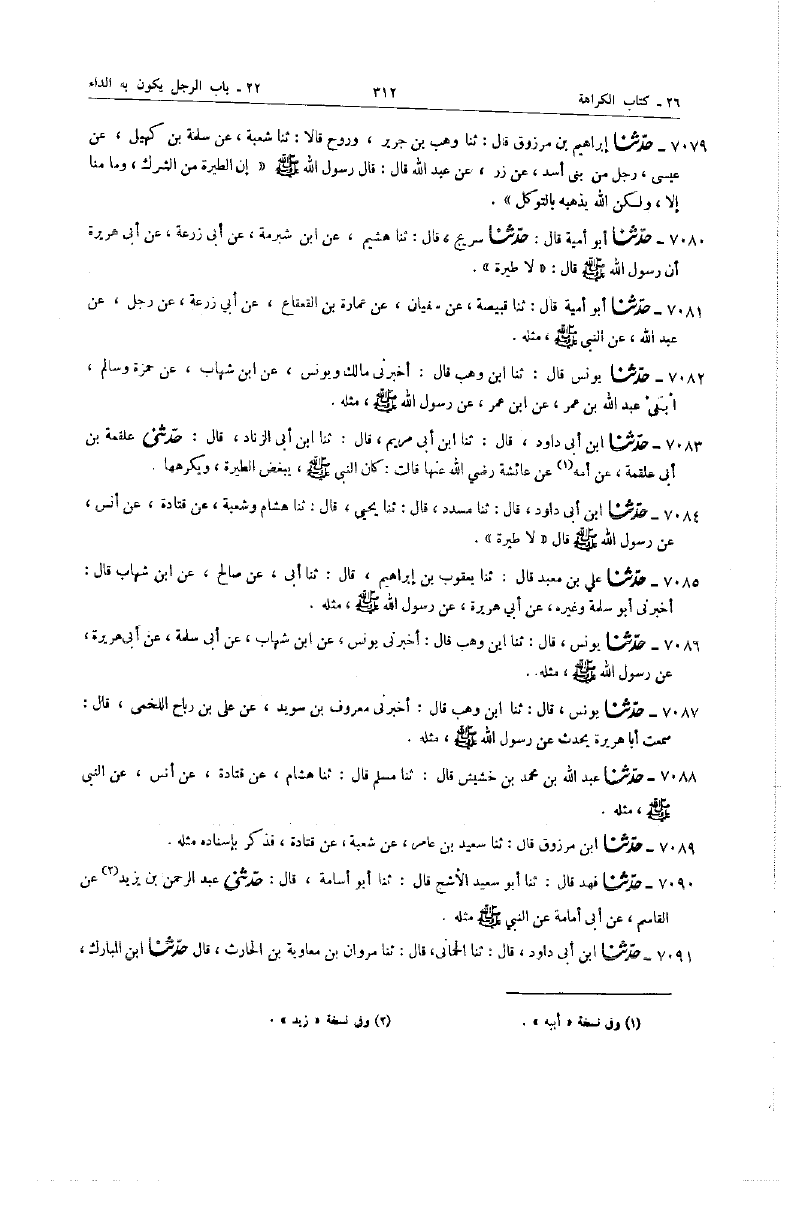 ٢٦ ـ كتاب الكراهة ٣١٢ ٢٢ ـ باب الرجل يكون به الداء
٧٠٧٩ ـ حدّثنا إبراهيم بن مرزوق قال : ثنا وهب بن جرير ، وروح قالا : ثنا شعبة ، عن سلمة بن كهيل ، عن
عيسى ، رجل من بنى أسد ، عن زر ، عن عبد الله قال : قال رسول الله ﷺ « إن الطيرة من الشرك ، وما منا
إلا ، ولكن الله يذهبه بالتوكل » .
٧٠٨٠ ـ حدّثنا أبو أمية قال : حدّثنا سريج ، قال : ثنا هشيم ، عن ابن شبرمة ، عن أبى زرعة ، عن أبى هريرة
أن رسول الله ﷺ قال : « لا طيرة » .
٧٠٨١ ـ حدّثنا أبو أمية قال : ثنا قبيصة ، عن سفيان ، عن عمارة بن القعقاع ، عن أبي زرعة ، عن رجل ، عن
عبد الله ، عن النبي ﷺ ، مثله .
٧٠٨٢ ـ حدّثنا يونس قال : ثنا ابن وهب قال : أخبرنى مالك ويونس ، عن ابن شهاب ، عن حمزة وسالم ،
ابْنَىْ عبد الله بن عمر ، عن ابن عمر ، عن رسول الله ﷺ ، مثله .
٧٠٨٣ ـ حدّثنا ابن أبى داود ، قال : ثنا ابن أبى مريم ، قال : ثنا ابن أبى الزناد ، قال : حدّثنى علقمة بن
أبى علقمة ، عن أمه(١) عن عائشة رضي الله عنها قالت : كان النبي ﷺ ، يبغض الطيرة ، ويكرهها .
٧٠٨٤ ـ حدّثنا ابن أبى داود ، قال : ثنا مسدد ، قال : ثنا يحيى ، قال : ثنا هشام وشعبة ، عن قتادة ، عن أنس ،
عن رسول الله ﷺ قال « لا طيرة » .
٧٠٨٥ ـ حدّثنا علي بن معبد قال : ثنا يعقوب بن إبراهيم ، قال : ثنا أبى ، عن صالح ، عن ابن شهاب قال :
أخبرنى أبو سلمة وغيره ، عن أبي هريرة ، عن رسول الله ﷺ ، مثله .
٧٠٨٦ ـ حدّثنا يونس ، قال : ثنا ابن وهب قال : أخبرنى يونس ، عن ابن شهاب ، عن أبى سلمة ، عن أبى هريرة ،
عن رسول الله ﷺ ، مثله .
٧٠٨٧ ـ حدّثنا يونس ، قال : ثنا ابن وهب قال : أخبرنى معروف بن سويد ، عن على بن رباح اللخمى ، قال :
سمعت أبا هريرة يحدث عن رسول الله ﷺ ، مثله .
٧٠٨٨ ـ حدّثنا عبد الله بن محمد بن خشيش قال : ثنا مسلم قال : ثنا هشام ، عن قتادة ، عن أنس ، عن النبي
ﷺ ، مثله .
٧٠٨٩ ـ حدّثنا ابن مرزوق قال : ثنا سعيد بن عامر ، عن شعبة ، عن قتادة ، فذكر بإسناده مثله .
٧٠٩٠ ـ حدّثنا فهد قال : ثنا أبو سعيد الأشج قال : ثنا أبو أسامة ، قال : حدّثنى عبد الرحمن بن يزيد(٢) عن
القاسم ، عن أبى أمامة عن النبي ﷺ مثله .
٧٠٩١ ـ حدّثنا ابن أبى داود ، قال : ثنا الحمانى ، قال : ثنا مروان بن معاوية بن الحارث ، قال حدّثنا ابن المبارك ،
(١) وفى نسخة « أبيه » . (٢) وفى نسخة « زيد » .